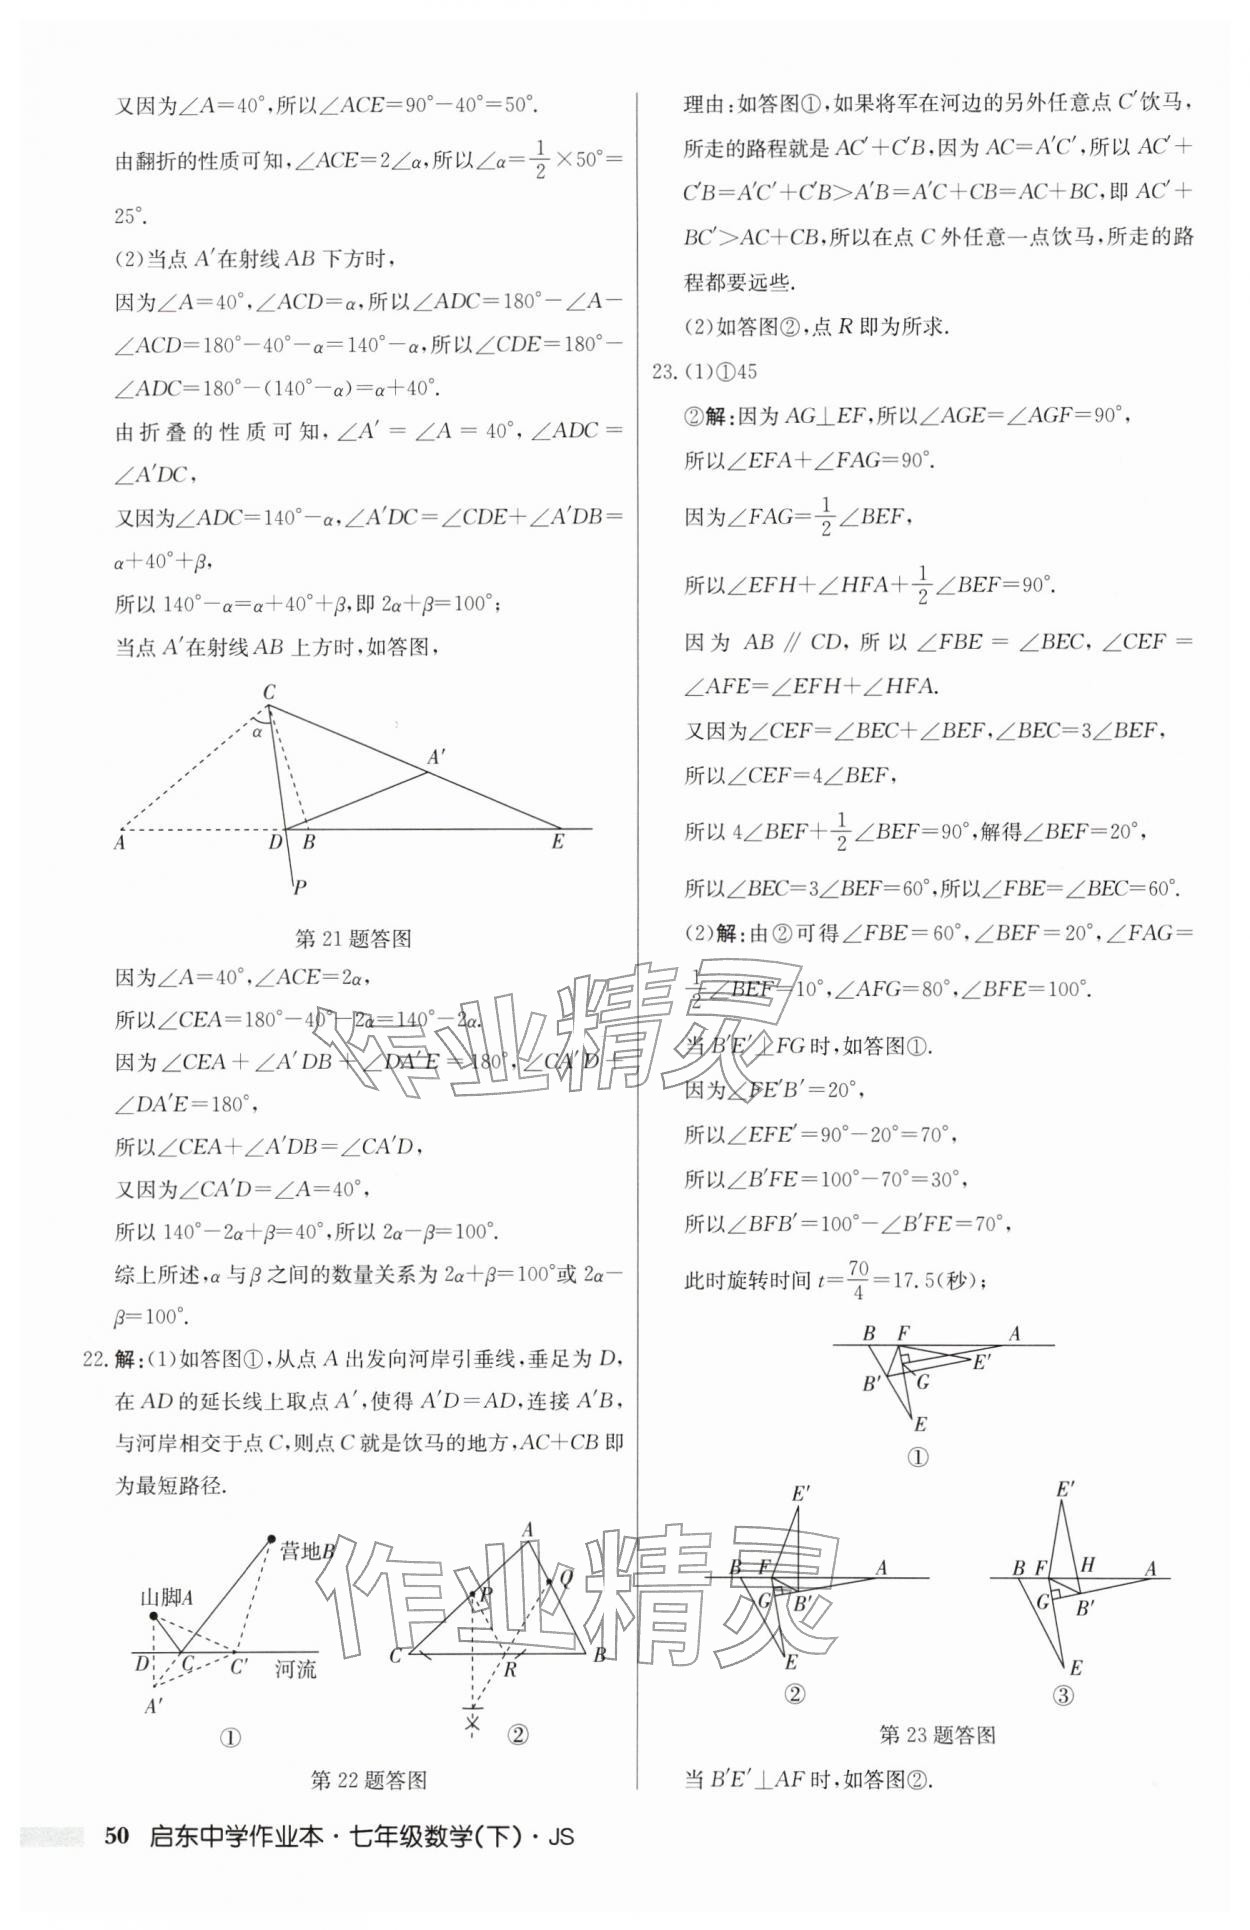 又因为∠A=40°,所以∠ACE=90°-40°=50°.
由翻折的性质可知,∠ACE=2∠α,所以∠α=1/2×50°=
25°.
(2)当点 A′在射线 AB 下方时,
因为∠A=40°,∠ACD=α,所以∠ADC=180°-∠A-
∠ACD=180°-40°-α=140°-α,所以∠CDE=180°-
∠ADC=180°-(140°-α)=α+40°.
由折叠的性质可知,∠A′=∠A=40°,∠ADC=
∠A′DC,
又因为∠ADC=140°-α,∠A′DC=∠CDE+∠A′DB=
α+40°+β,
所以 140°-α=α+40°+β,即 2α+β=100°;
当点 A′在射线 AB 上方时,如答图,
C
α
A′
A D B E
P
第 21 题答图
因为∠A=40°,∠ACE=2α,
所以∠CEA=180°-40°-2α=140°-2α.
因为∠CEA+∠A′DB+∠DA′E=180°,∠CA′D+
∠DA′E=180°,
所以∠CEA+∠A′DB=∠CA′D,
又因为∠CA′D=∠A=40°,
所以 140°-2α+β=40°,所以 2α-β=100°.
综上所述,α 与 β 之间的数量关系为 2α+β=100°或 2α-
β=100°.
22. 解:(1)如答图①,从点 A 出发向河岸引垂线,垂足为 D,
在 AD 的延长线上取点 A′,使得 A′D=AD,连接 A′B,
与河岸相交于点 C,则点 C 就是饮马的地方,AC+CB 即
为最短路径.
营地B
山脚A
D C C′ 河流
A′
①
A
P Q
C R B
②
第 22 题答图
理由:如答图①,如果将军在河边的另外任意点 C′饮马,
所走的路程就是 AC′+C′B,因为 AC=A′C′,所以 AC′+
C′B=A′C′+C′B>A′B=A′C+CB=AC+BC,即 AC′+
BC′>AC+CB,所以在点 C 外任意一点饮马,所走的路
程都要远些.
(2)如答图②,点 R 即为所求.
23. (1)①45
②解:因为 AG⊥EF,所以∠AGE=∠AGF=90°,
所以∠EFA+∠FAG=90°.
因为∠FAG=1/2∠BEF,
所以∠EFH+∠HFA+1/2∠BEF=90°.
因为 AB∥CD,所以∠FBE=∠BEC,∠CEF=
∠AFE=∠EFH+∠HFA.
又因为∠CEF=∠BEC+∠BEF,∠BEC=3∠BEF,
所以∠CEF=4∠BEF,
所以 4∠BEF+1/2∠BEF=90°,解得∠BEF=20°,
所以∠BEC=3∠BEF=60°,所以∠FBE=∠BEC=60°.
(2)解:由②可得∠FBE=60°,∠BEF=20°,∠FAG=
1/2∠BEF=10°,∠AFG=80°,∠BFE=100°.
当 B′E′⊥FG 时,如答图①.
因为∠FE′B′=20°,
所以∠EFE′=90°-20°=70°,
所以∠B′FE=100°-70°=30°,
所以∠BFB′=100°-∠B′FE=70°,
此时旋转时间 t=70/4=17.5(秒);
B F A
E′
B′ G
E
①
E′
B F A
G B′
E
②
E′
B F H A
G B′
E
③
第 23 题答图
当 B′E′⊥AF 时,如答图②.
作业精灵
作业精灵
50 启东中学作业本·七年级数学(下)·JS